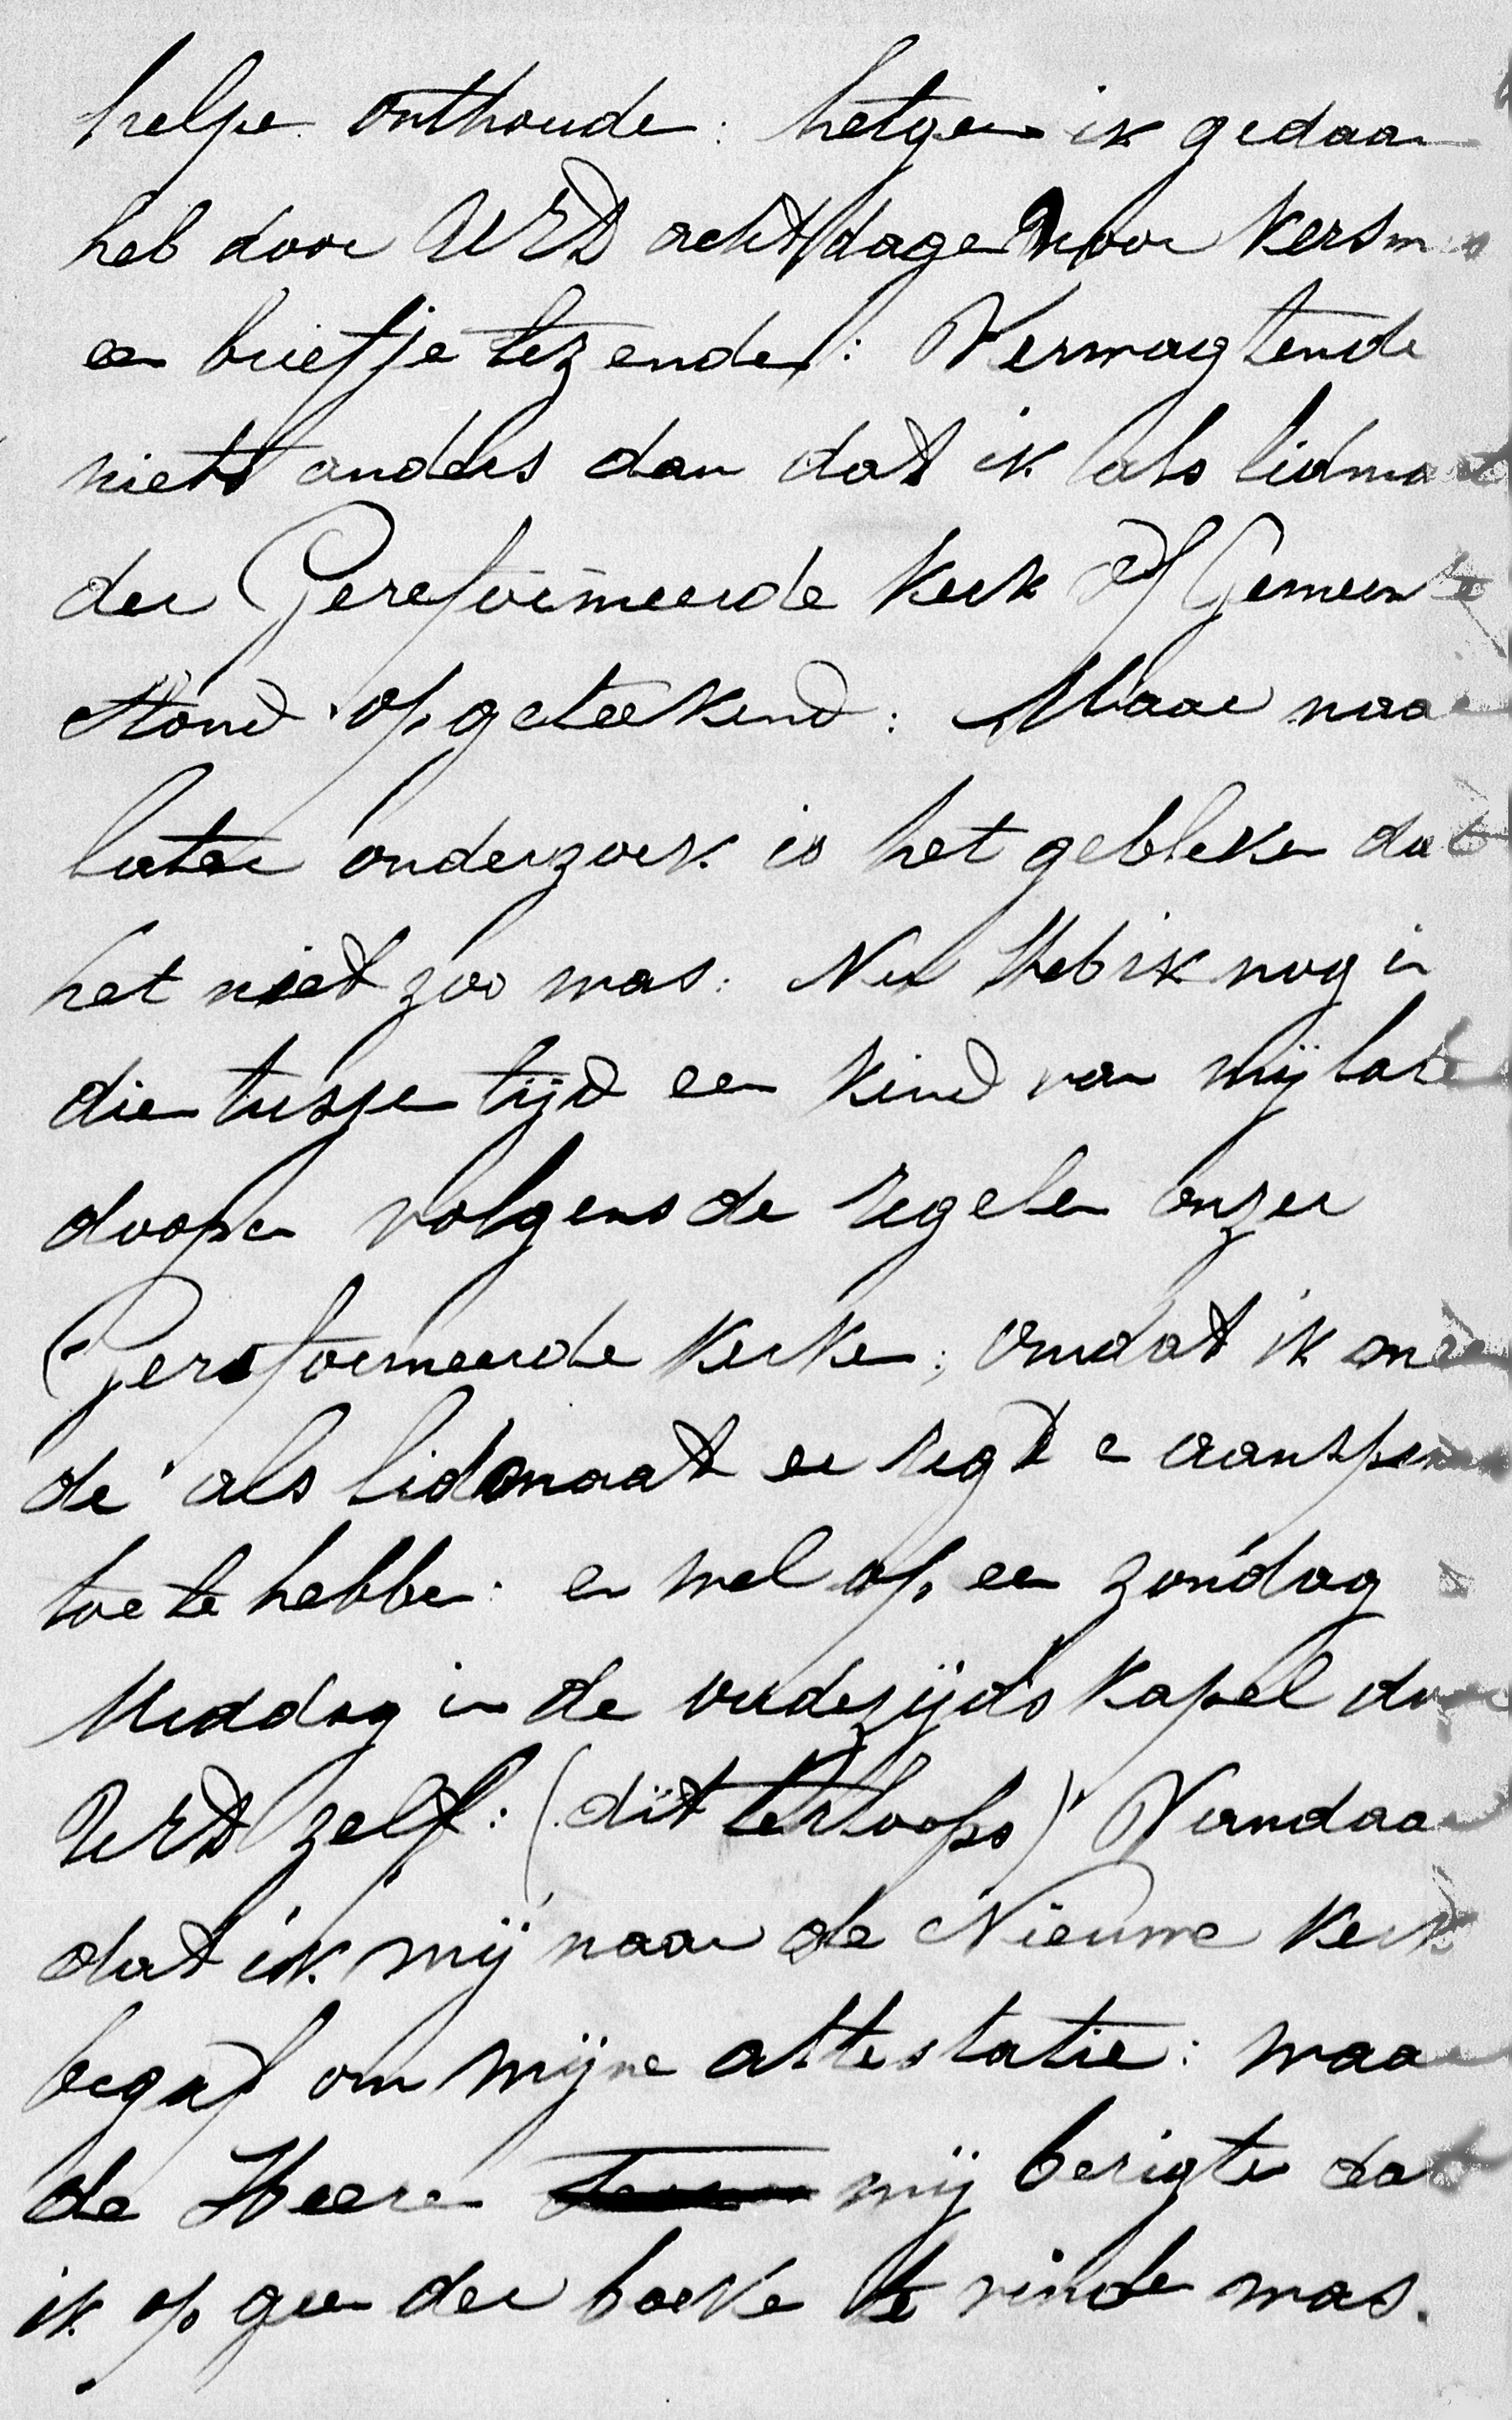 helpe onthoude: hetgeen ik gedaan
heb door UEd acht dagen voor kersm
een briefje tezenden: Verwagtende
niets anders dan dat ik als lidmaat
der Gereformeerde kerk of Gemeente
stond opgeteekend: Maar naar
later onderzoek is het gebleken dat
het niet zoo was: Nu Heb ik nog in
dien tusschen tijd een kind van mij laten
doopen volgens de regelen onzer
Gereformeerde kerken; omdat ik meen
de als lidmaat er regt en aanspraak
toe te hebben: en wel op een zondag
Middag in de oudezijds kapel door
UEd zelf: (dit terloops) Vandaar
dat ik mij naar de Nieuwe kerk
begaf om mijne attestatie: maar
de Heeren mij berigten dat
ik op geen der boeken te vinden was.